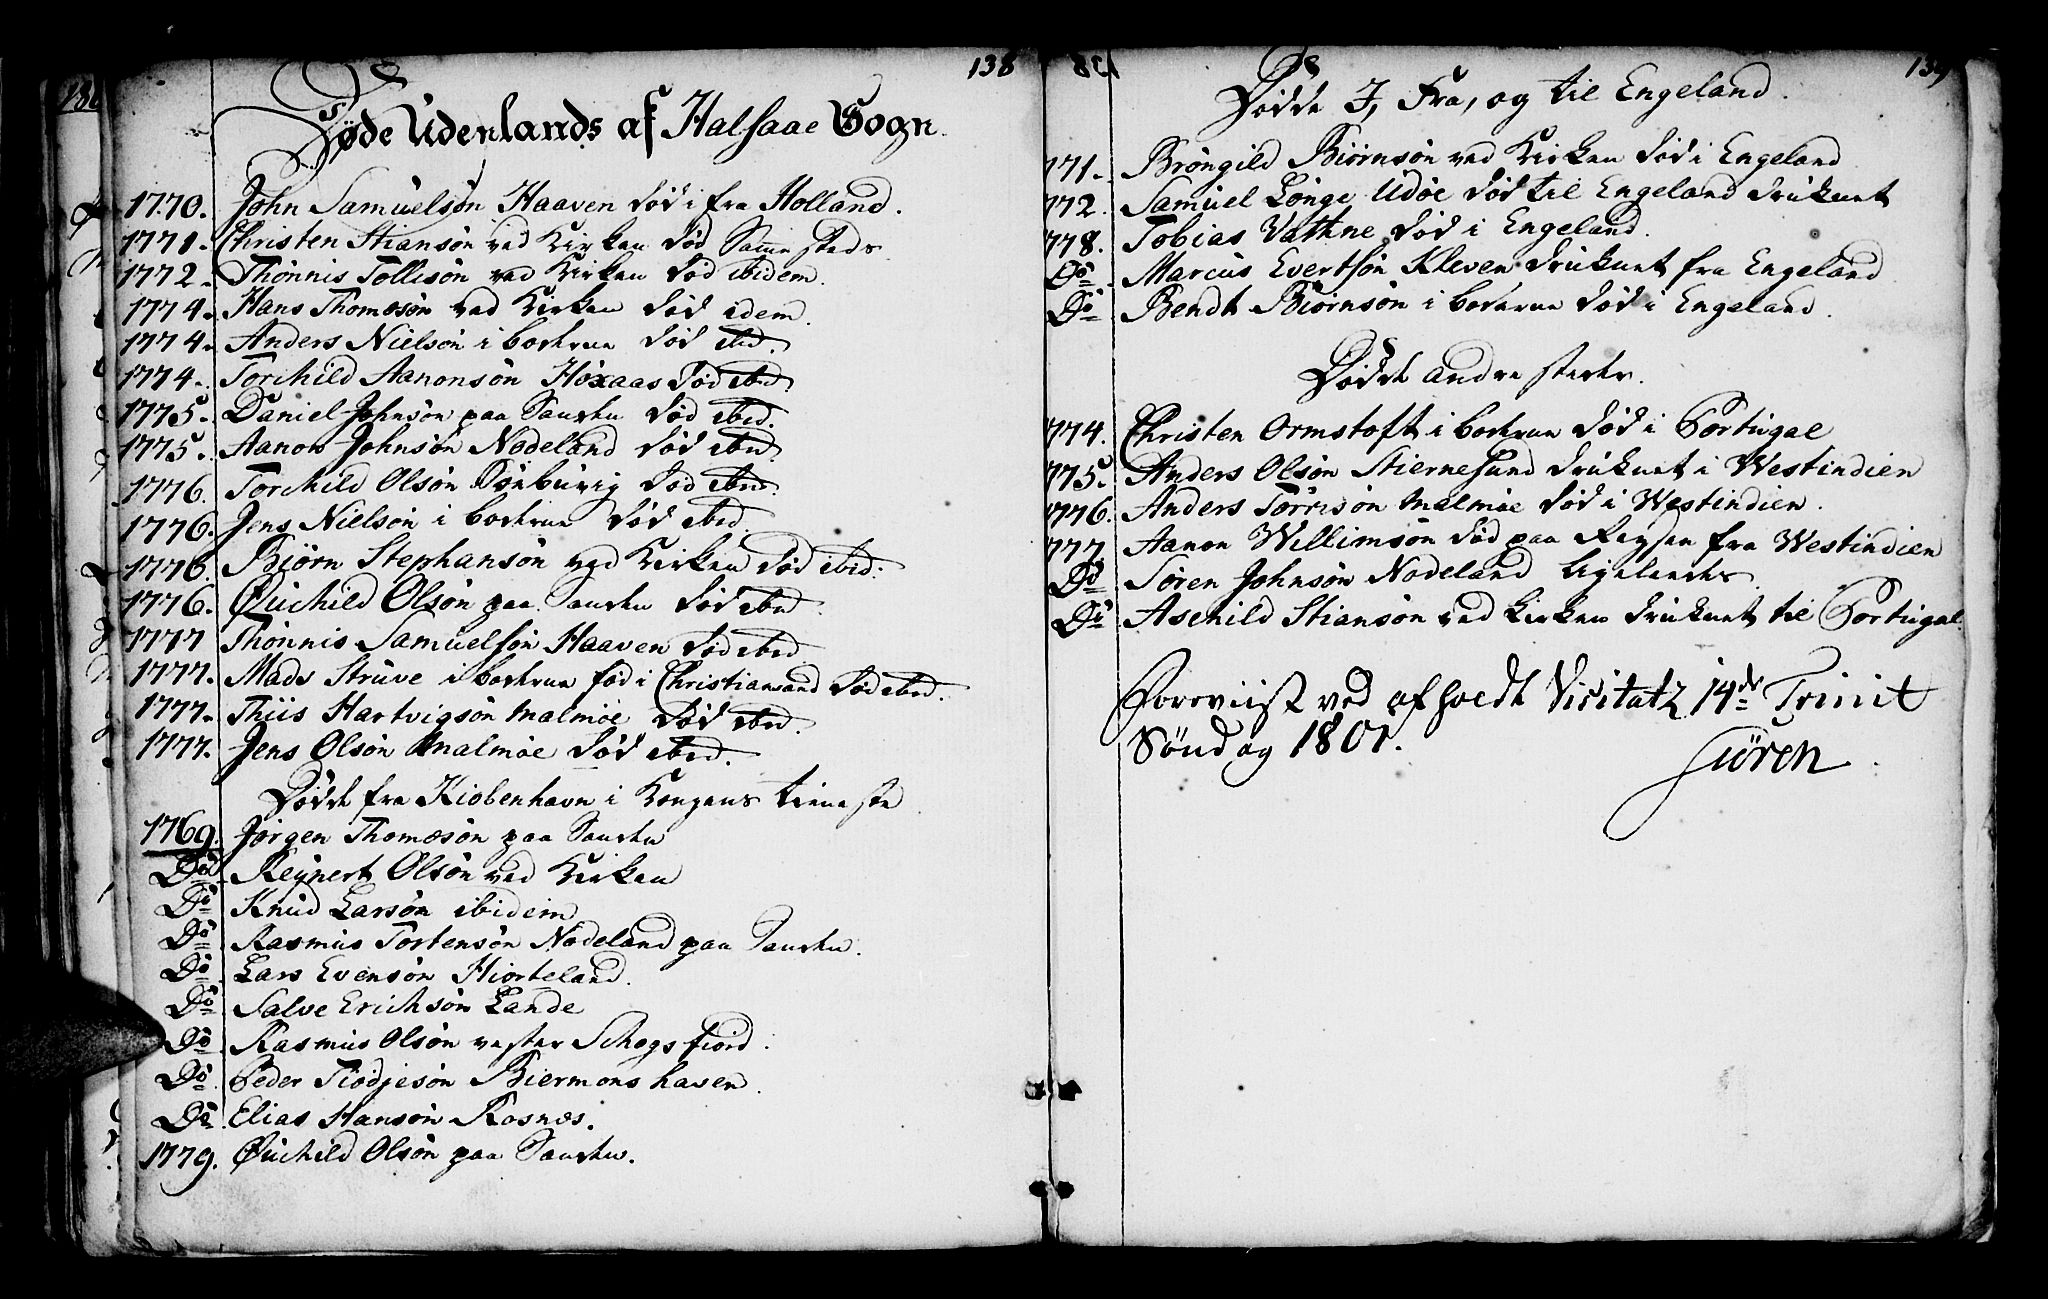 138
Døde Udenlands af Halsaae Sogn.
1770. John Samuelsøn Haaven død i fra Holland.
1771. Christen Stiansøn ved Kirken død Samme steds
1772. Thønnis Tollisøn ved Kirken død ibidem.
1774. Hans Thomæsøn ved Kirken død idem.
1774. Anders Nielsøn i boehrun død ibid.
1774. Torchild Aanonsøn Høxaas død ibid.
1775. Daniel Johnsøn paa død ibid.
1775. Aanon Johnsøn Nodeland død ibid.
1776. Torchild Olsøn død ibid.
1776. Jens Nielsøn i død ibid.
1776. Biørn Stephansøn ved Kirken død ibid.
1776. Øuchild Olsøn paa død ibid.
1777 Thønnis Samuelsøn Haaven død ibid
1777. Mads Struve i fød i Christiansand død ibid.
1777. Thiis Hartvigsøn Malmøe død ibid.
1777. Jens Olsøn Malmøe død ibid.
Døde fra Kiøbenhavn i Kongens tieneste
1769. Jørgen Thomæsøn paa
Do Reynert Olsøn ved Kirken
Do Knud Larsøn ibidem
Do Rasmus Tortensøn Nodeland paa
Do Lars Evensøn Hiorteland.
Do Salve Erichsøn Lande
Do Rasmus Olsøn vester Schogsfiord.
Do Peder Tiødjesøn Biermonshaven.
Do Elias Hansøn Rosnæs.
1779. Øuchild Olsøn paa
139
Døde I, Fra, og til Engeland.
771. Brøngild Biørnsøn ved Kirken død i Engeland
772. Samuel Longe Udøe død til Engeland druknet
778. Tobias Vathne død i Engeland.
Do Marcus Evertsøn Kleven druknet fra Engeland
Do Bendt Biørnsøn i død i Engeland.
Døde andre steder.
774. Christen Ormstoft i død i Portugal
775. Anders Olsøn Stiernesund druknet i Westindien
776. Anders Tørrisøn Malmøe død i Westindien.
777. Aanon Willimsøn død paa Reysen fra Westindien
Do Søren Johnsøn Nodeland ligeledes
Do Asehild Stiansøn ved Kirken druknet til Portugal.
Foreviist ved afholdt Visitatz 14de Trinit
Søndag 1801.